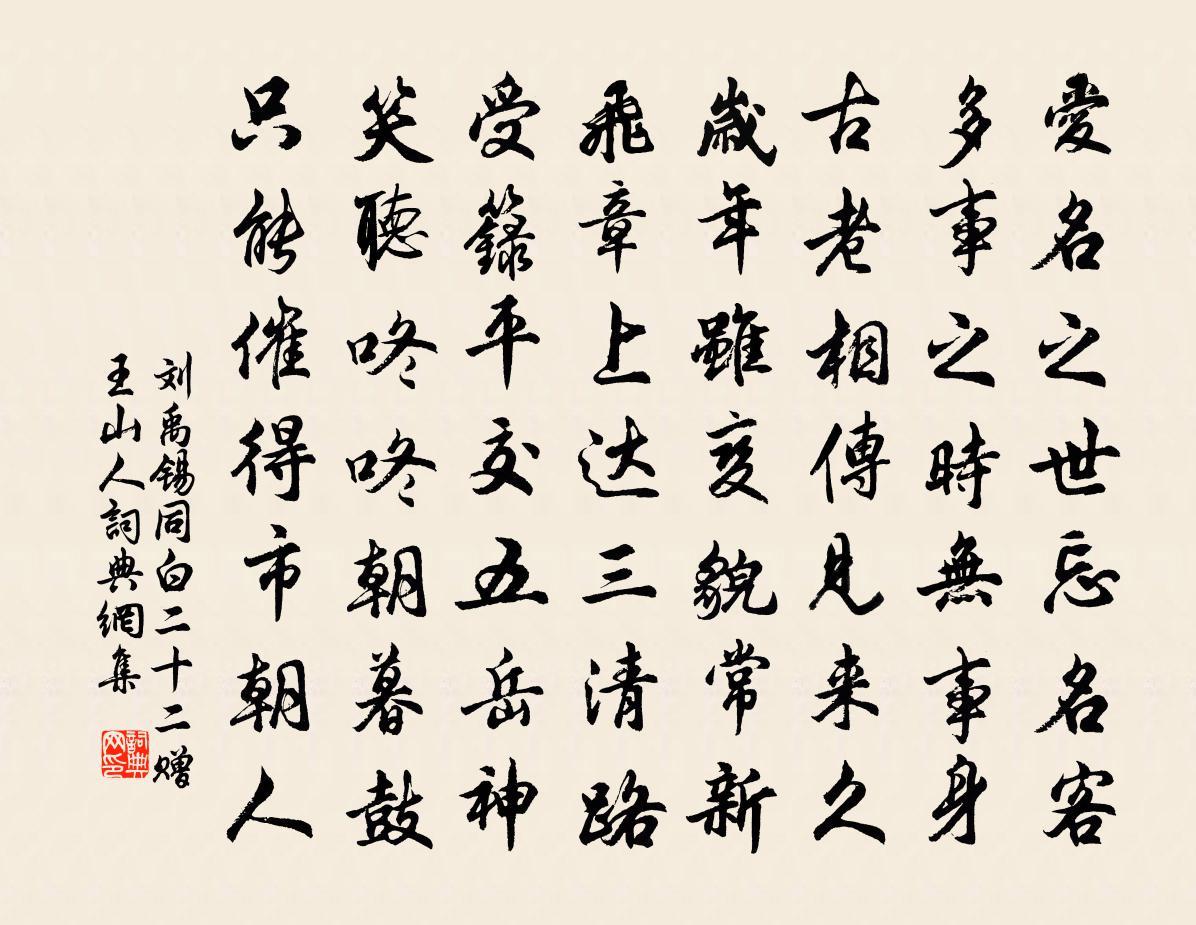 愛名之世忘名客
多事之時無事身
古老相傳見来久
歲年雖变貌常新
飛章上达三清路
受籙平交五岳神
笑聽咚咚朝暮鼓
只能催得市朝人
刘禹锡同白二十二赠
王山人詞典網集
詞典网印